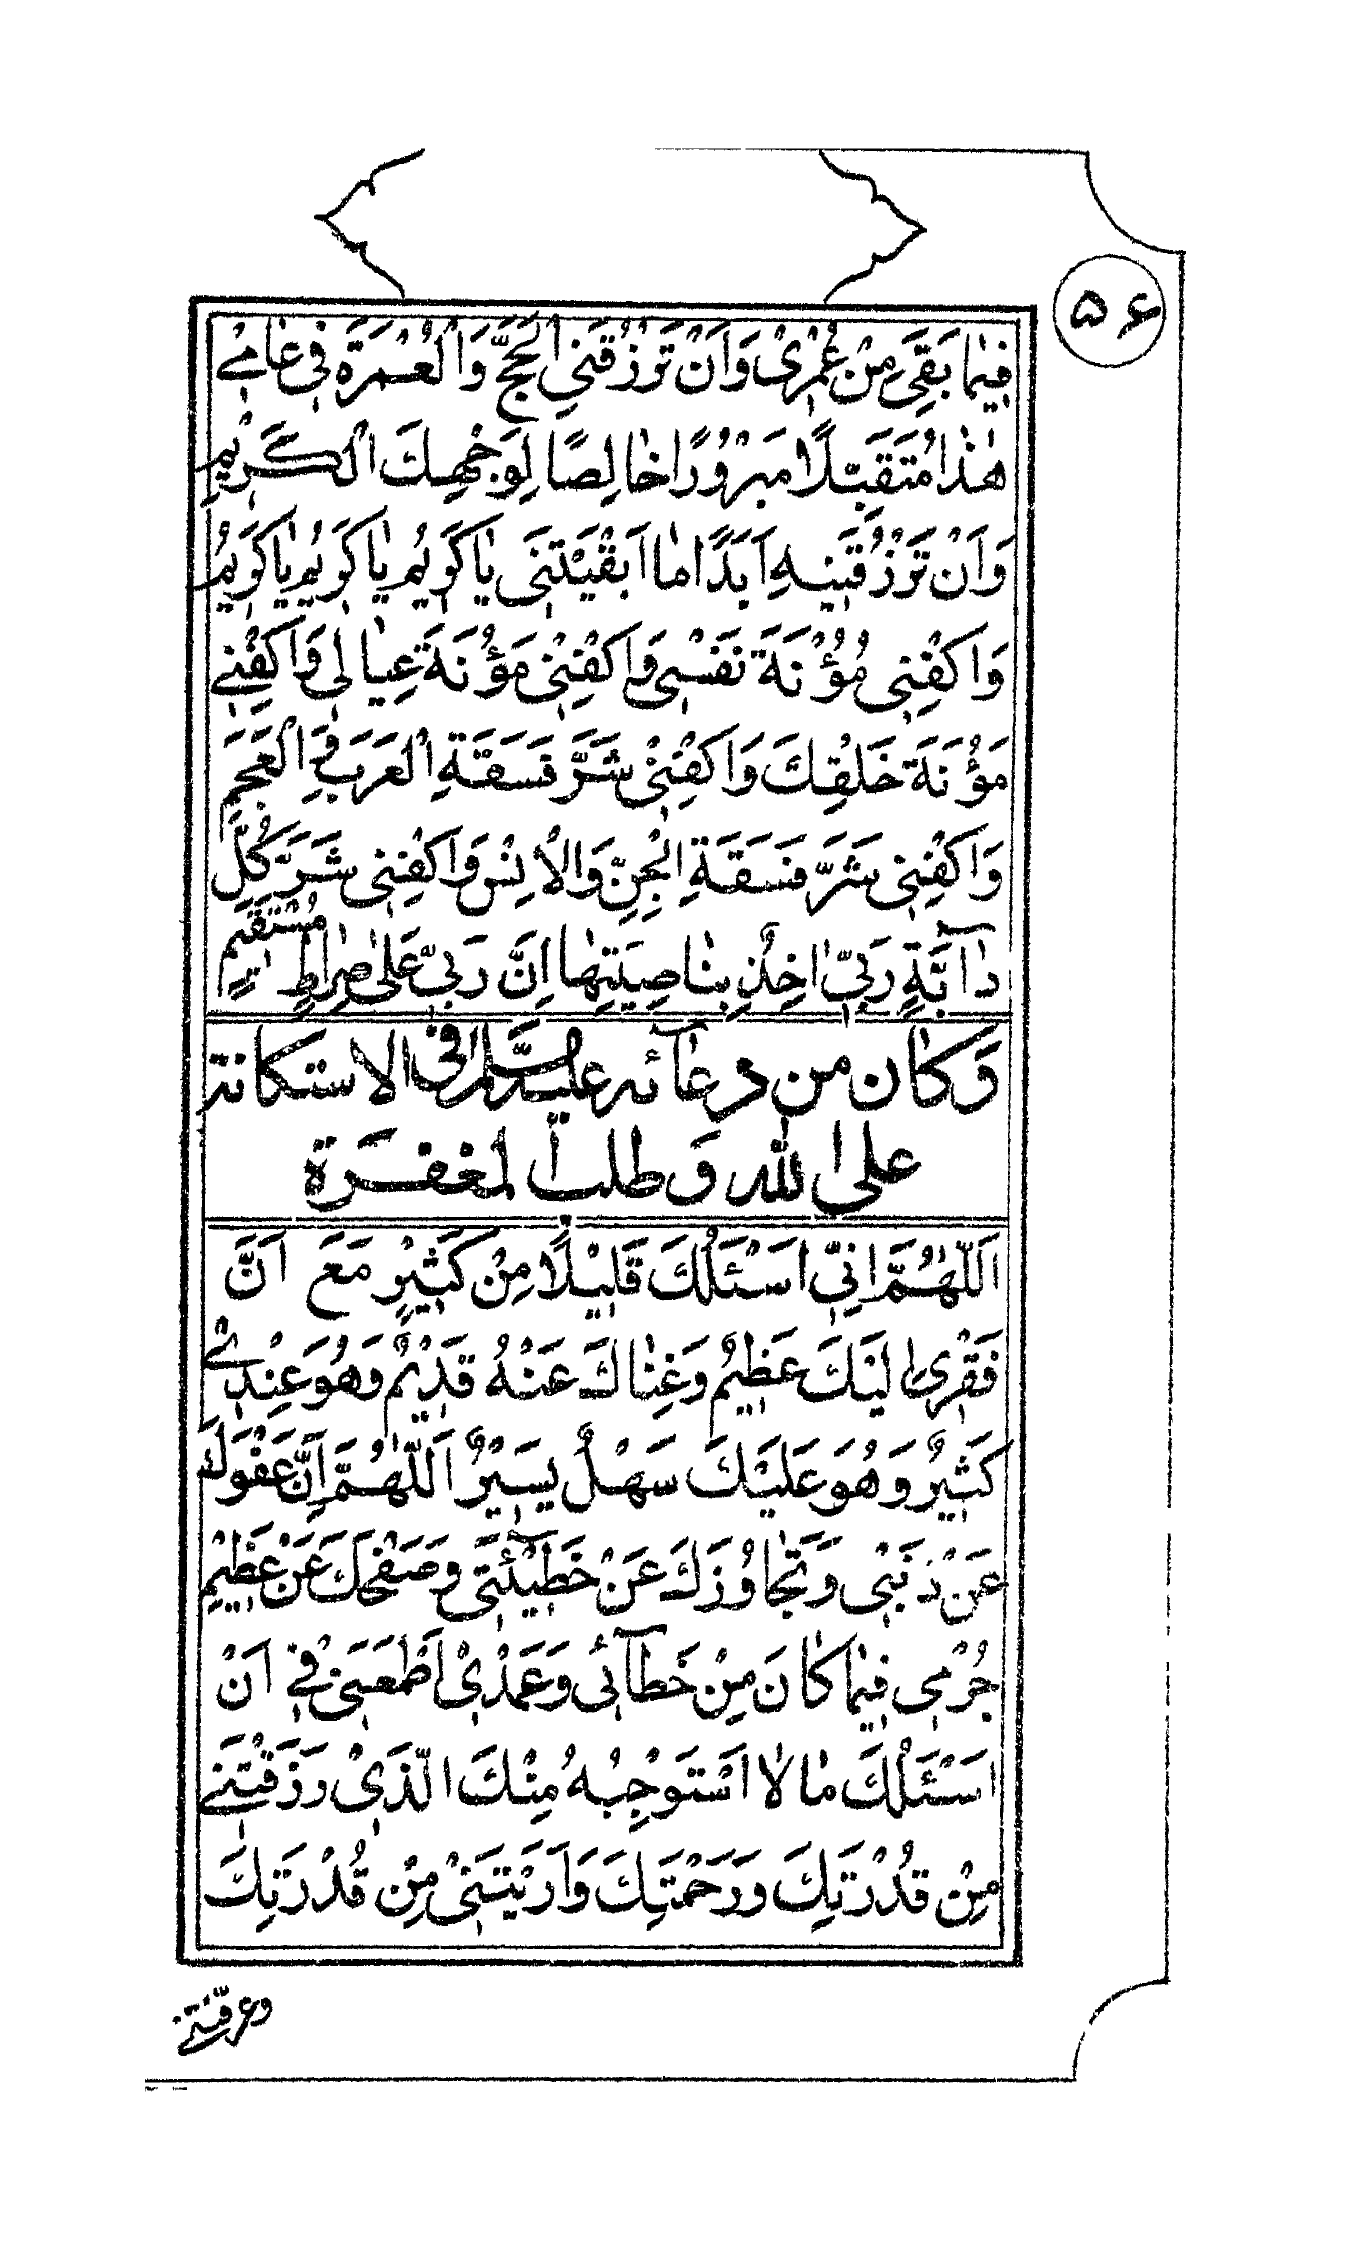 ۵۶
فِيمَا بَقِيَ مِنْ عُمْرِىْ وَاَنْ تَرْزُقَنِى الْحَجَّ وَالْعُمْرَةَ فِى عَامِى
هٰذَا مُتَقَبَّلًا مَبْرُوْرًا خَالِصًا لِوَجْهِكَ الْكَرِيْمِ
وَاَنْ تَرْزُقَنِيْهِ اَبَدًا مَا اَبْقَيْتَنِى يَا كَرِيْمُ يَا كَرِيْمُ يَا كَرِيْمُ
وَاكْفِنِى مُؤْنَةَ نَفْسِى وَاكْفِنِىْ مَؤُنَةَ عِيَالِى وَاكْفِنِى
مَؤُنَةَ خَلْقِكَ وَاكْفِنِىْ شَرَّ فَسَقَةِ الْعَرَبِ وَالْعَجَمِ
وَاكْفِنِى شَرَّ فَسَقَةِ الْجِنِّ وَالْاِنْسِ وَاكْفِنِى شَرَّ كُلِّ
دَآبَّةٍ رَبِّى اٰخِذٌ بِنَاصِيَتِهَا اِنَّ رَبِّى عَلٰى صِرَاطٍ مُسْتَقِيْمٍ
وَكَان من دعآئه عليه السّلام فى الاستكانة
على الله وَ طلب المغفرَة
اَللّٰهُمَّ اِنِّى اَسْئَلُكَ قَلِيْلًا مِنْ كَثِيْرٍ مَعَ اَنَّ
فَقْرِى اِلَيْكَ عَظِيْمٌ وَغِنَاكَ عَنْهُ قَدِيْمٌ وَهُوَ عِنْدِىْ
كَثِيْرٌ وَهُوَ عَلَيْكَ سَهْلٌ يَسِيْرٌ اَللّٰهُمَّ اِنَّ عَفْوَكَ
عَنْ ذَنْبِى وَتَجَاوُزَكَ عَنْ خَطِيْٓئَتِى وَصَفْحَكَ عَنْ عَظِيْمِ
جُرْمِى فِيْمَا كَانَ مِنْ خَطَآئِى وَعَمْدِىْ اَطْمَعَنِى فِى اَنْ
اَسْئَلَكَ مَا لَا اَسْتَوْجِبُهُ مِنْكَ الَّذِىْ رَزَقْتَنِى
مِنْ قُدْرَتِكَ وَرَحْمَتِكَ وَاَرَيْتَنِىْ مِنْ قُدْرَتِكَ
وعرفتنى